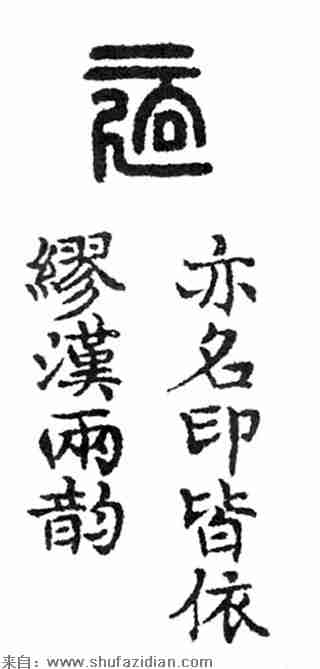 亦名印皆依
繆漢兩韵
来自：www.shufazidian.com